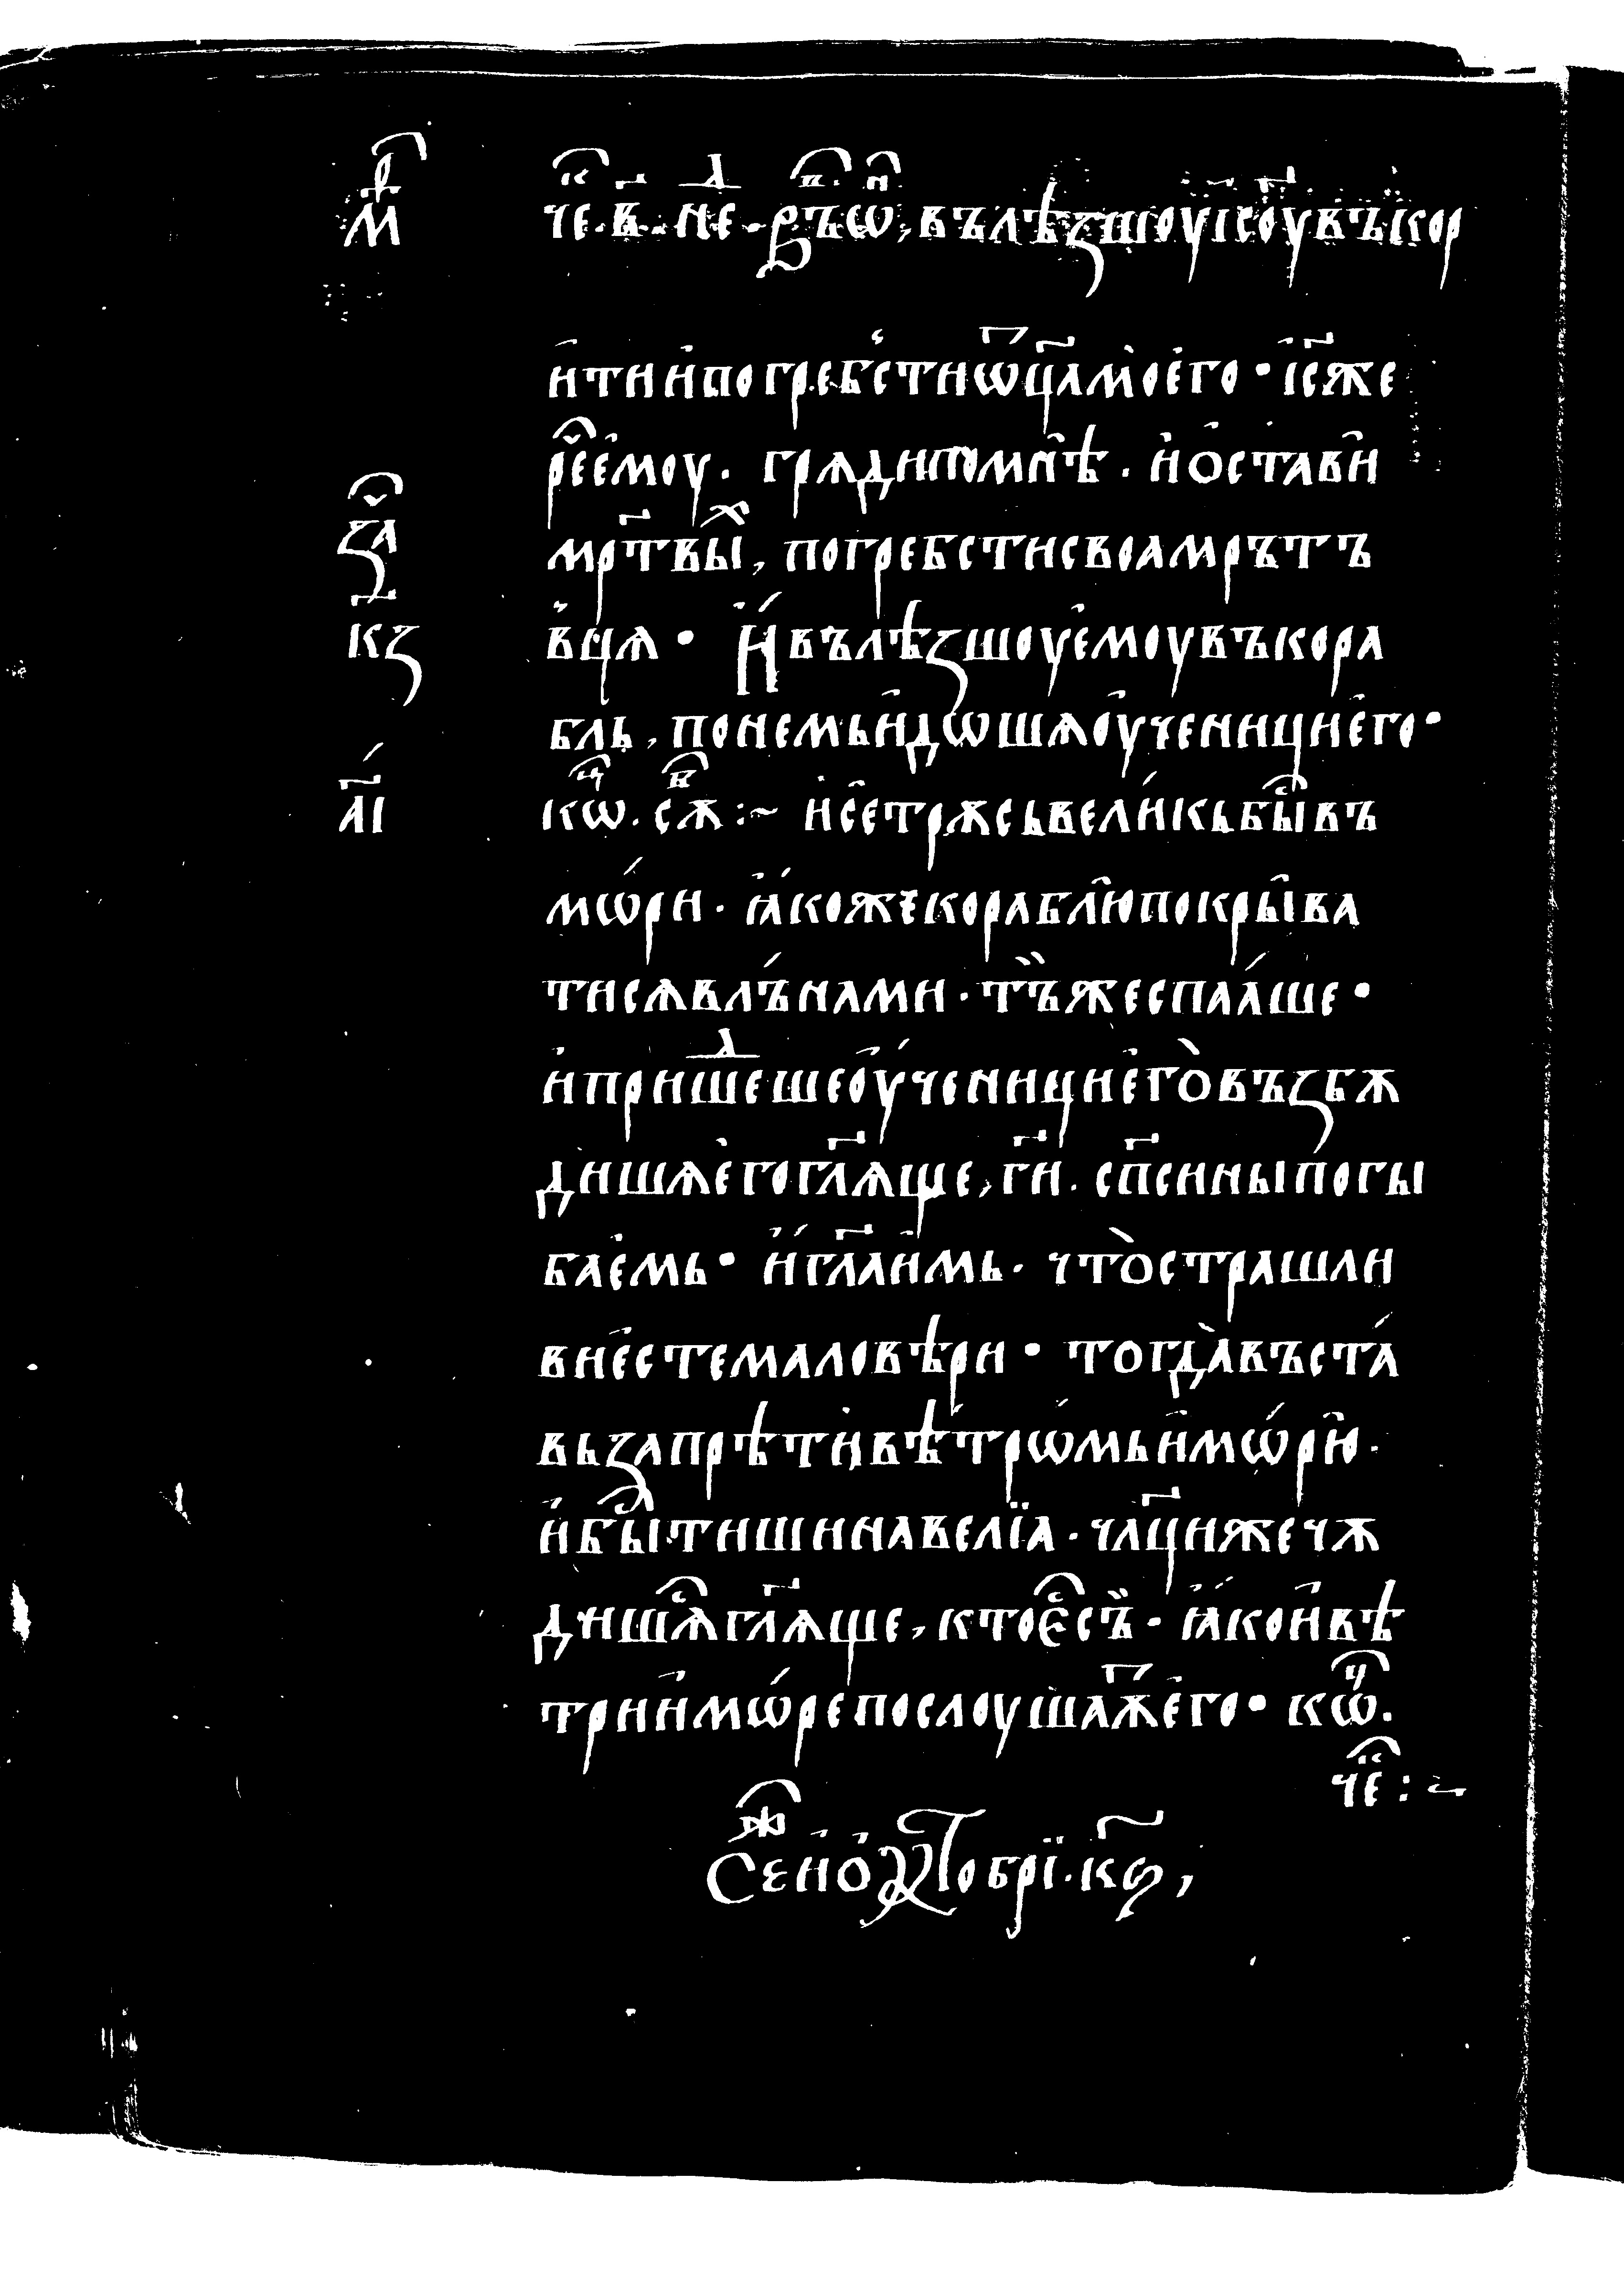 мⷬ҇т
чеⷦ҇ · в҃ · неⷣ · ръⷫ҇ ѡⷩ҇, вълѣзшоу і҆с҃оу въ кор
и҆ти и҆ погребсти ѡ҃ц҃а моего̀ • і҆с҃ же
рⷱ҇е е҆моу · грѧди по мнѣ · и҆ ѡ҆стави
зⷱ҇а
мр҃твыⷯ, погребсти своа мрътъ
к҃з
вцѧ • И҆ вълѣзшоу е҆моу въ кора
бль, по немь и҆дѡшѧ оу҆ченици е҆го •
а҃і
кѡⷰ҇ · сѫⷠ҇ :~ и҆ се трѫсь вели́кь быⷭ҇ въ
мѡ́ри · ꙗ҆́коже кораблю̑ покрыва
тисѧ влъ́нами · тъ̏ же спаа́ше •
и҆ пришеⷣше оу҆ченици е҆го̀ възбѫ
дишѧ е҆го гл҃ѧще, г҃и · сп҃си ны погы
баемь • и҆ гл҃а и҆мь · что̀ страшли
ви е҆сте маловѣри • тогда̀ въста́
вь запрѣти вѣтрѡ́мь и҆ мѡ́рю ·
и҆ быⷭ҇ тишина велїа · чл҃ци же чѫ
дишѧⷭ҇ гл҃ѧще, кто еⷭ҇ съ̏ · ꙗ҆ко и҆ вѣ
три и҆ мѡ́ре послоушаѫⷮ е҆го • кѡⷰ҇ ·
чеⷦ҇ :~
Сеⷤ и҆ о҆ꙋⷮобрї · кѕ҃,